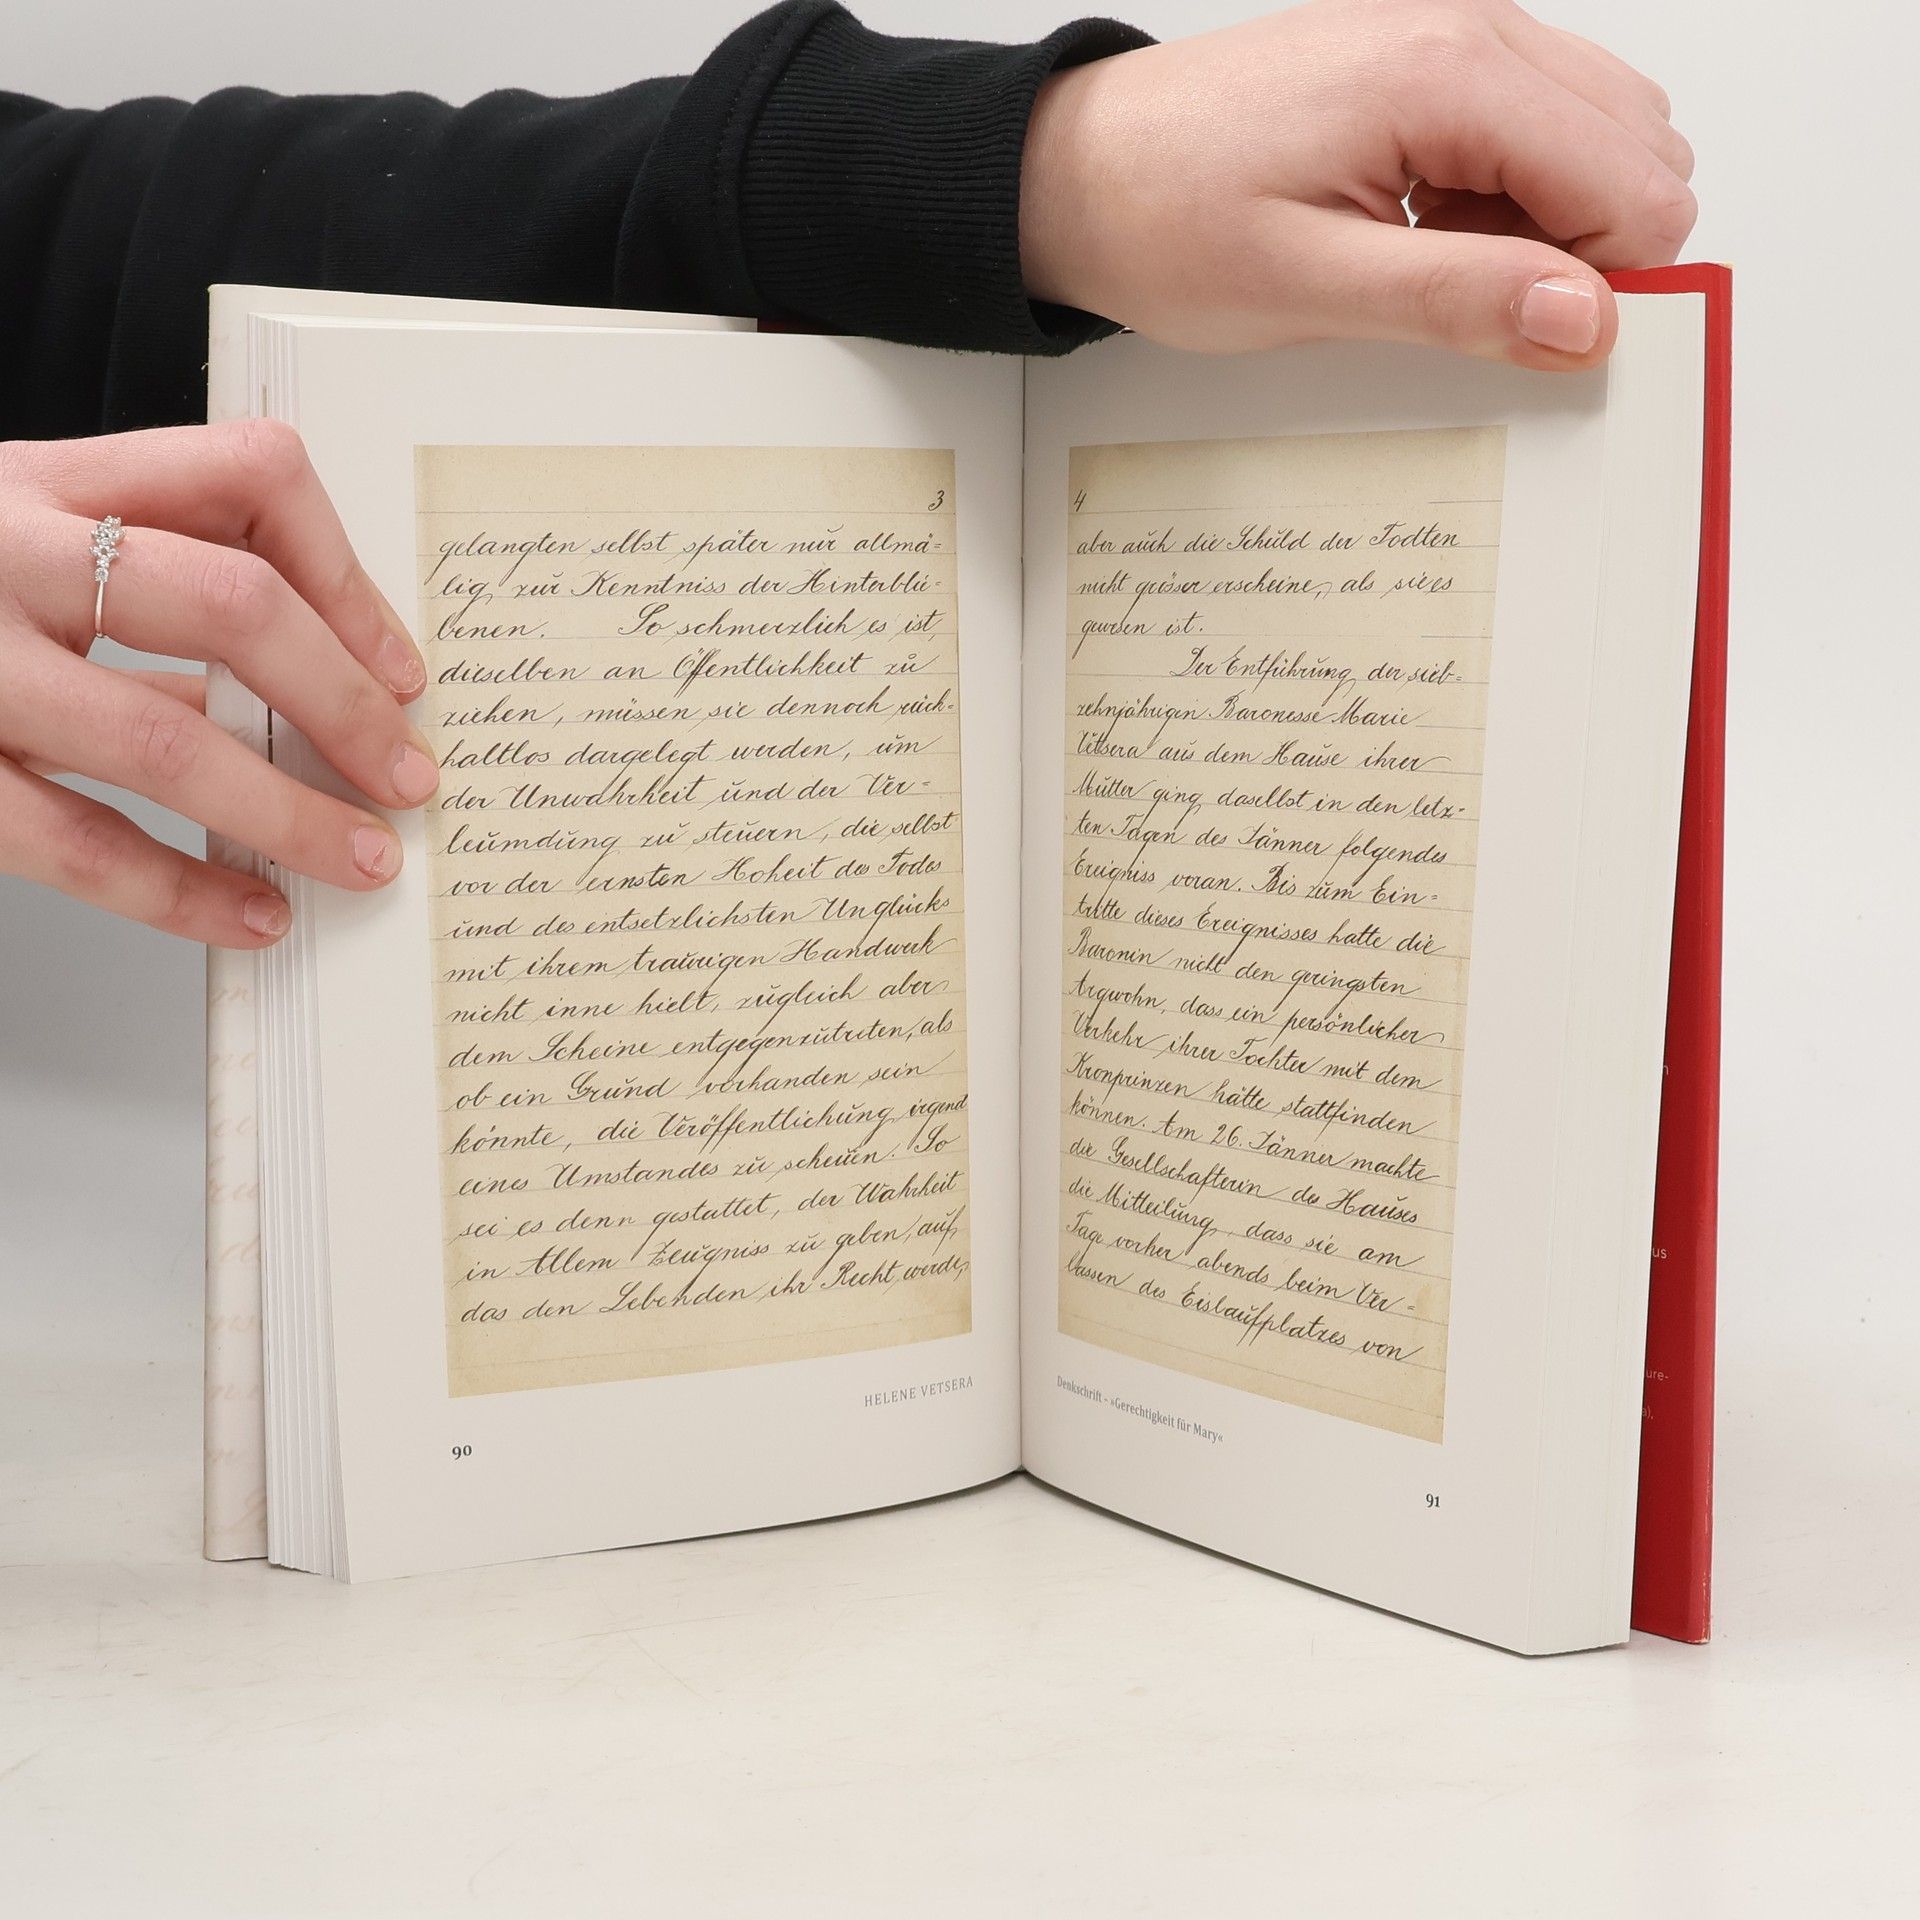 3
gelangten selbst später nur allmä=
lig zur Kenntniss der Hinterblie=
benen. So schmerzlich es ist,
dieselben an Öffentlichkeit zu
ziehen, müssen sie dennoch rück=
haltlos dargelegt werden, um
der Unwahrheit und der Ver=
leumdung zu steuern, die selbst
vor der ernsten Hoheit des Todes
und des entsetzlichsten Unglücks
mit ihrem traurigen Handwerk
nicht inne hielt, zugleich aber
dem Scheine entgegenzutreten, als
ob ein Grund vorhanden sein
könnte, die Veröffentlichung irgend
eines Umstandes zu scheuen. So
sei es denn gestattet, der Wahrheit
in Allem Zeugniss zu geben, auf
das den Lebenden ihr Recht werde,
HELENE VETSERA
90
4
aber auch die Schuld der Todten
nicht grösser erscheine, als sie es
gewesen ist.
Der Entführung der sieb=
zehnjährigen Baronesse Marie
Vetsera aus dem Hause ihrer
Mutter ging daselbst in den letz=
ten Tagen des Jänner folgendes
Ereigniss voran. Bis zum Ein=
tritte dieses Ereignisses hatte die
Baronin nicht den geringsten
Argwohn, dass ein persönlicher
Verkehr ihrer Tochter mit dem
Kronprinzen hätte stattfinden
können. Am 26. Jänner machte
die Gesellschafterin des Hauses
die Mitteilung, dass sie am
Tage vorher abends beim Ver=
lassen des Eislaufplatzes von
Denkschrift – »Gerechtigkeit für Mary«
91
us
ure-
a).